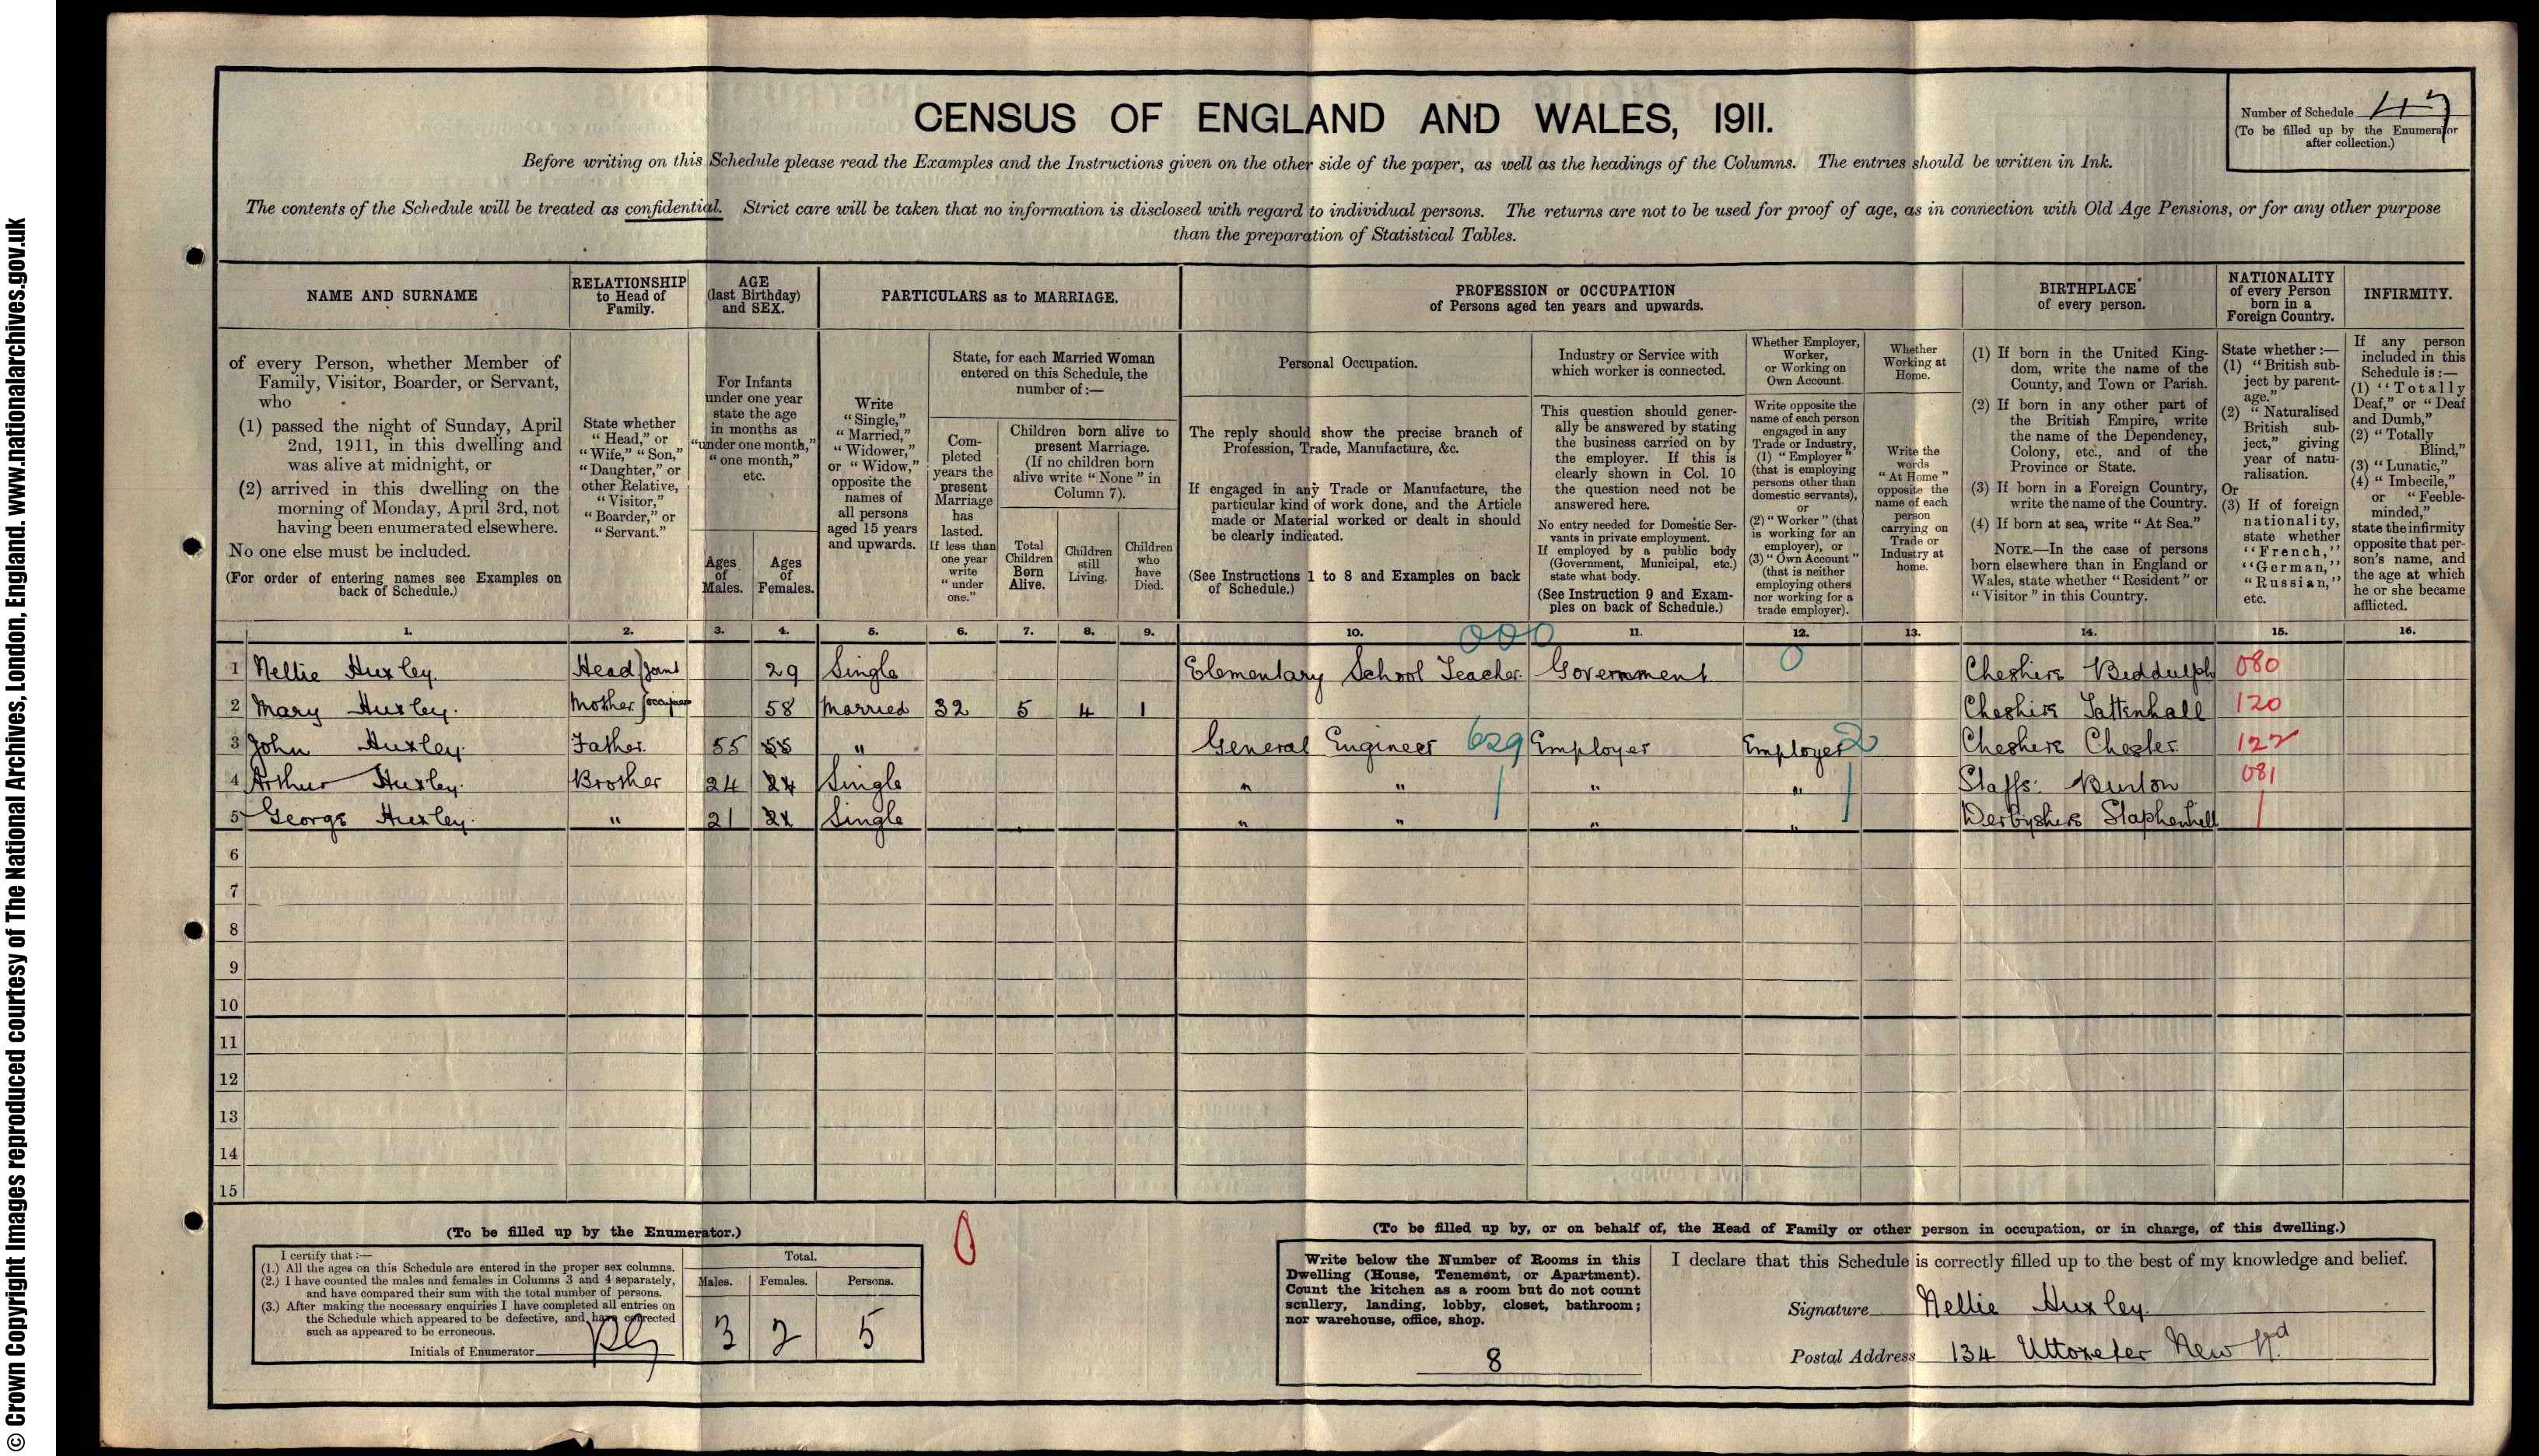 © Crown Copyright Images reproduced courtesy of The National Archives, London, England. www.nationalarchives.gov.uk
CENSUS OF ENGLAND AND WALES, 1911.
Number of Schedule 47
(To be filled up by the Enumerator after collection.)
Before writing on this Schedule please read the Examples and the Instructions given on the other side of the paper, as well as the headings of the Columns. The entries should be written in Ink.
The contents of the Schedule will be treated as confidential. Strict care will be taken that no information is disclosed with regard to individual persons. The returns are not to be used for proof of age, as in connection with Old Age Pensions, or for any other purpose
than the preparation of Statistical Tables.
NAME AND SURNAME
of every Person, whether Member of
Family, Visitor, Boarder, or Servant,
who
(1) passed the night of Sunday, April
2nd, 1911, in this dwelling and
was alive at midnight, or
(2) arrived in this dwelling on the
morning of Monday, April 3rd, not
having been enumerated elsewhere.
No one else must be included.
(For order of entering names see Examples on
back of Schedule.)
RELATIONSHIP
to Head of
Family.
State whether
"Head," or
"Wife," "Son,"
"Daughter," or
other Relative,
"Visitor,"
"Boarder," or
"Servant."
AGE
(last Birthday)
and SEX.
For Infants
under one year
state the age
in months as
"under one month,"
"one month,"
etc.
Ages
of
Males.
Ages
of
Females.
PARTICULARS as to MARRIAGE.
Write
"Single,"
"Married,"
"Widower,"
or "Widow,"
opposite the
names of
all persons
aged 15 years
and upwards.
State, for each Married Woman
entered on this Schedule, the
number of:—
Com-
pleted
years the
present
Marriage
has
lasted.
If less than
one year
write
"under
one."
Children born alive to
present Marriage.
(If no children born
alive write "None" in
Column 7).
Total
Children
Born
Alive.
Children
still
Living.
Children
who
have
Died.
PROFESSION or OCCUPATION
of Persons aged ten years and upwards.
Personal Occupation.
The reply should show the precise branch of
Profession, Trade, Manufacture, &c.
If engaged in any Trade or Manufacture, the
particular kind of work done, and the Article
made or Material worked or dealt in should
be clearly indicated.
(See Instructions 1 to 8 and Examples on back
of Schedule.)
Industry or Service with
which worker is connected.
This question should gener-
ally be answered by stating
the business carried on by
the employer. If this is
clearly shown in Col. 10
the question need not be
answered here.
No entry needed for Domestic Ser-
vants in private employment.
If employed by a public body
(Government, Municipal, etc.)
state what body.
(See Instruction 9 and Exam-
ples on back of Schedule.)
Whether Employer,
Worker,
or Working on
Own Account.
Write opposite the
name of each person
engaged in any
Trade or Industry,
(1) "Employer"
(that is employing
persons other than
domestic servants),
or
(2) "Worker" (that
is working for an
employer), or
(3) "Own Account"
(that is neither
employing others
nor working for a
trade employer).
Whether
Working at
Home.
Write the
words
"At Home"
opposite the
name of each
person
carrying on
Trade or
Industry at
home.
BIRTHPLACE
of every person.
(1) If born in the United King-
dom, write the name of the
County, and Town or Parish.
(2) If born in any other part of
the British Empire, write
the name of the Dependency,
Colony, etc., and of the
Province or State.
(3) If born in a Foreign Country,
write the name of the Country.
(4) If born at sea, write "At Sea."
NOTE.—In the case of persons
born elsewhere than in England or
Wales, state whether "Resident" or
"Visitor" in this Country.
NATIONALITY
of every Person
born in a
Foreign Country.
State whether:—
(1) "British sub-
ject by parent-
age."
(2) "Naturalised
British sub-
ject," giving
year of natu-
ralisation.
Or
(3) If of foreign
nationality,
state whether
"French,"
"German,"
"Russian,"
etc.
INFIRMITY.
If any person
included in this
Schedule is:—
(1) "Totally
Deaf," or "Deaf
and Dumb,"
(2) "Totally
Blind,"
(3) "Lunatic,"
(4) "Imbecile,"
or "Feeble-
minded,"
state the infirmity
opposite that per-
son's name, and
the age at which
he or she became
afflicted.
1. 2. 3. 4. 5. 6. 7. 8. 9. 10. 000 11. 12. 13. 14. 15. 16.
1 Nellie Huxley Head } Joint 29 Single Elementary School Teacher Government 0 Cheshire Biddulph 080
2 Mary Huxley. Mother } occupier 58 Married 32 5 4 1 Cheshire Tattenhall 120
3 John Huxley. Father 55 55 " General Engineer 629 Employer Employer 2 Cheshire Chester 122
4 Arthur Huxley. Brother 24 24 Single " " " " Staffs. Burton 081
5 George Huxley. " 21 21 Single " " " " Derbyshire Stapenhill
6
7
8
9
10
11
12
13
14
15
(To be filled up by the Enumerator.)
I certify that:—
(1.) All the ages on this Schedule are entered in the proper sex columns.
(2.) I have counted the males and females in Columns 3 and 4 separately,
and have compared their sum with the total number of persons.
(3.) After making the necessary enquiries I have completed all entries on
the Schedule which appeared to be defective, and have corrected
such as appeared to be erroneous.
Initials of Enumerator
Total.
Males. Females. Persons.
3 2 5
0
(To be filled up by, or on behalf of, the Head of Family or other person in occupation, or in charge, of this dwelling.)
Write below the Number of Rooms in this
Dwelling (House, Tenement, or Apartment).
Count the kitchen as a room but do not count
scullery, landing, lobby, closet, bathroom;
nor warehouse, office, shop.
8
I declare that this Schedule is correctly filled up to the best of my knowledge and belief.
Signature Nellie Huxley.
Postal Address 134 Uttoxeter New Rd